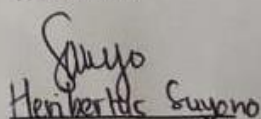 Suyo
Heribertus Suyono